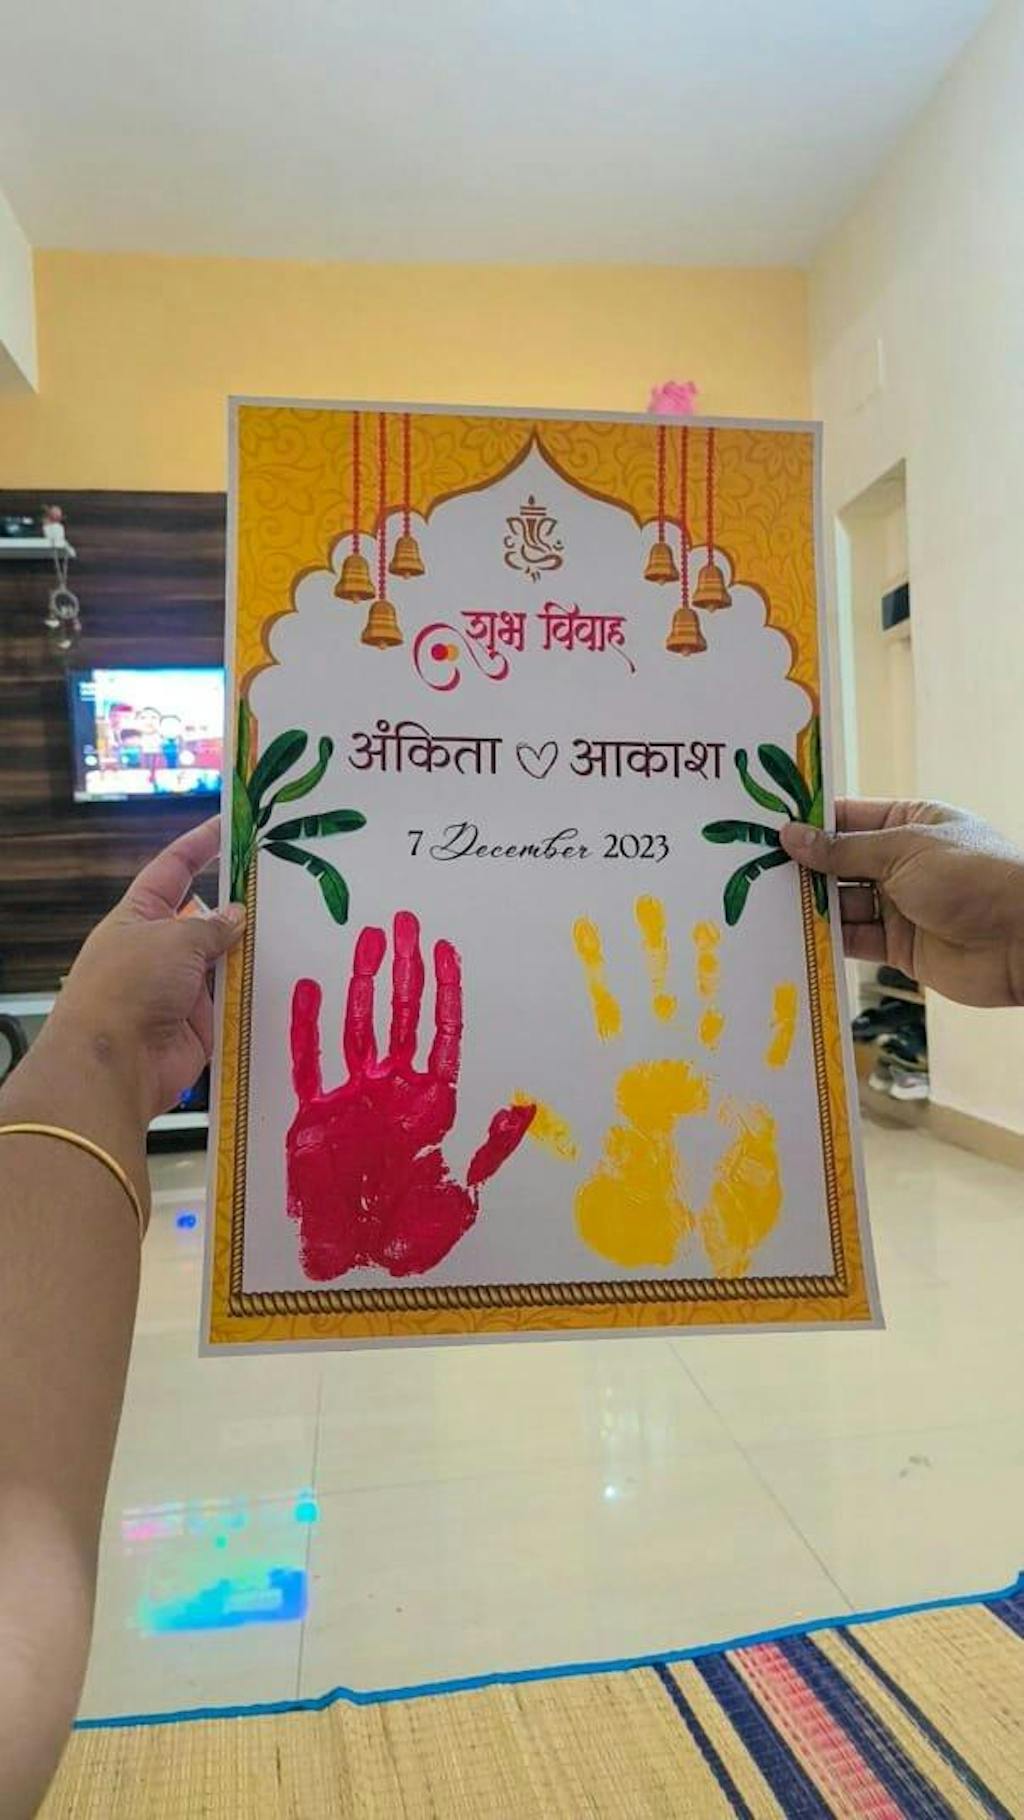 शुभ विवाह
अंकिता आकाश
7 December 2023